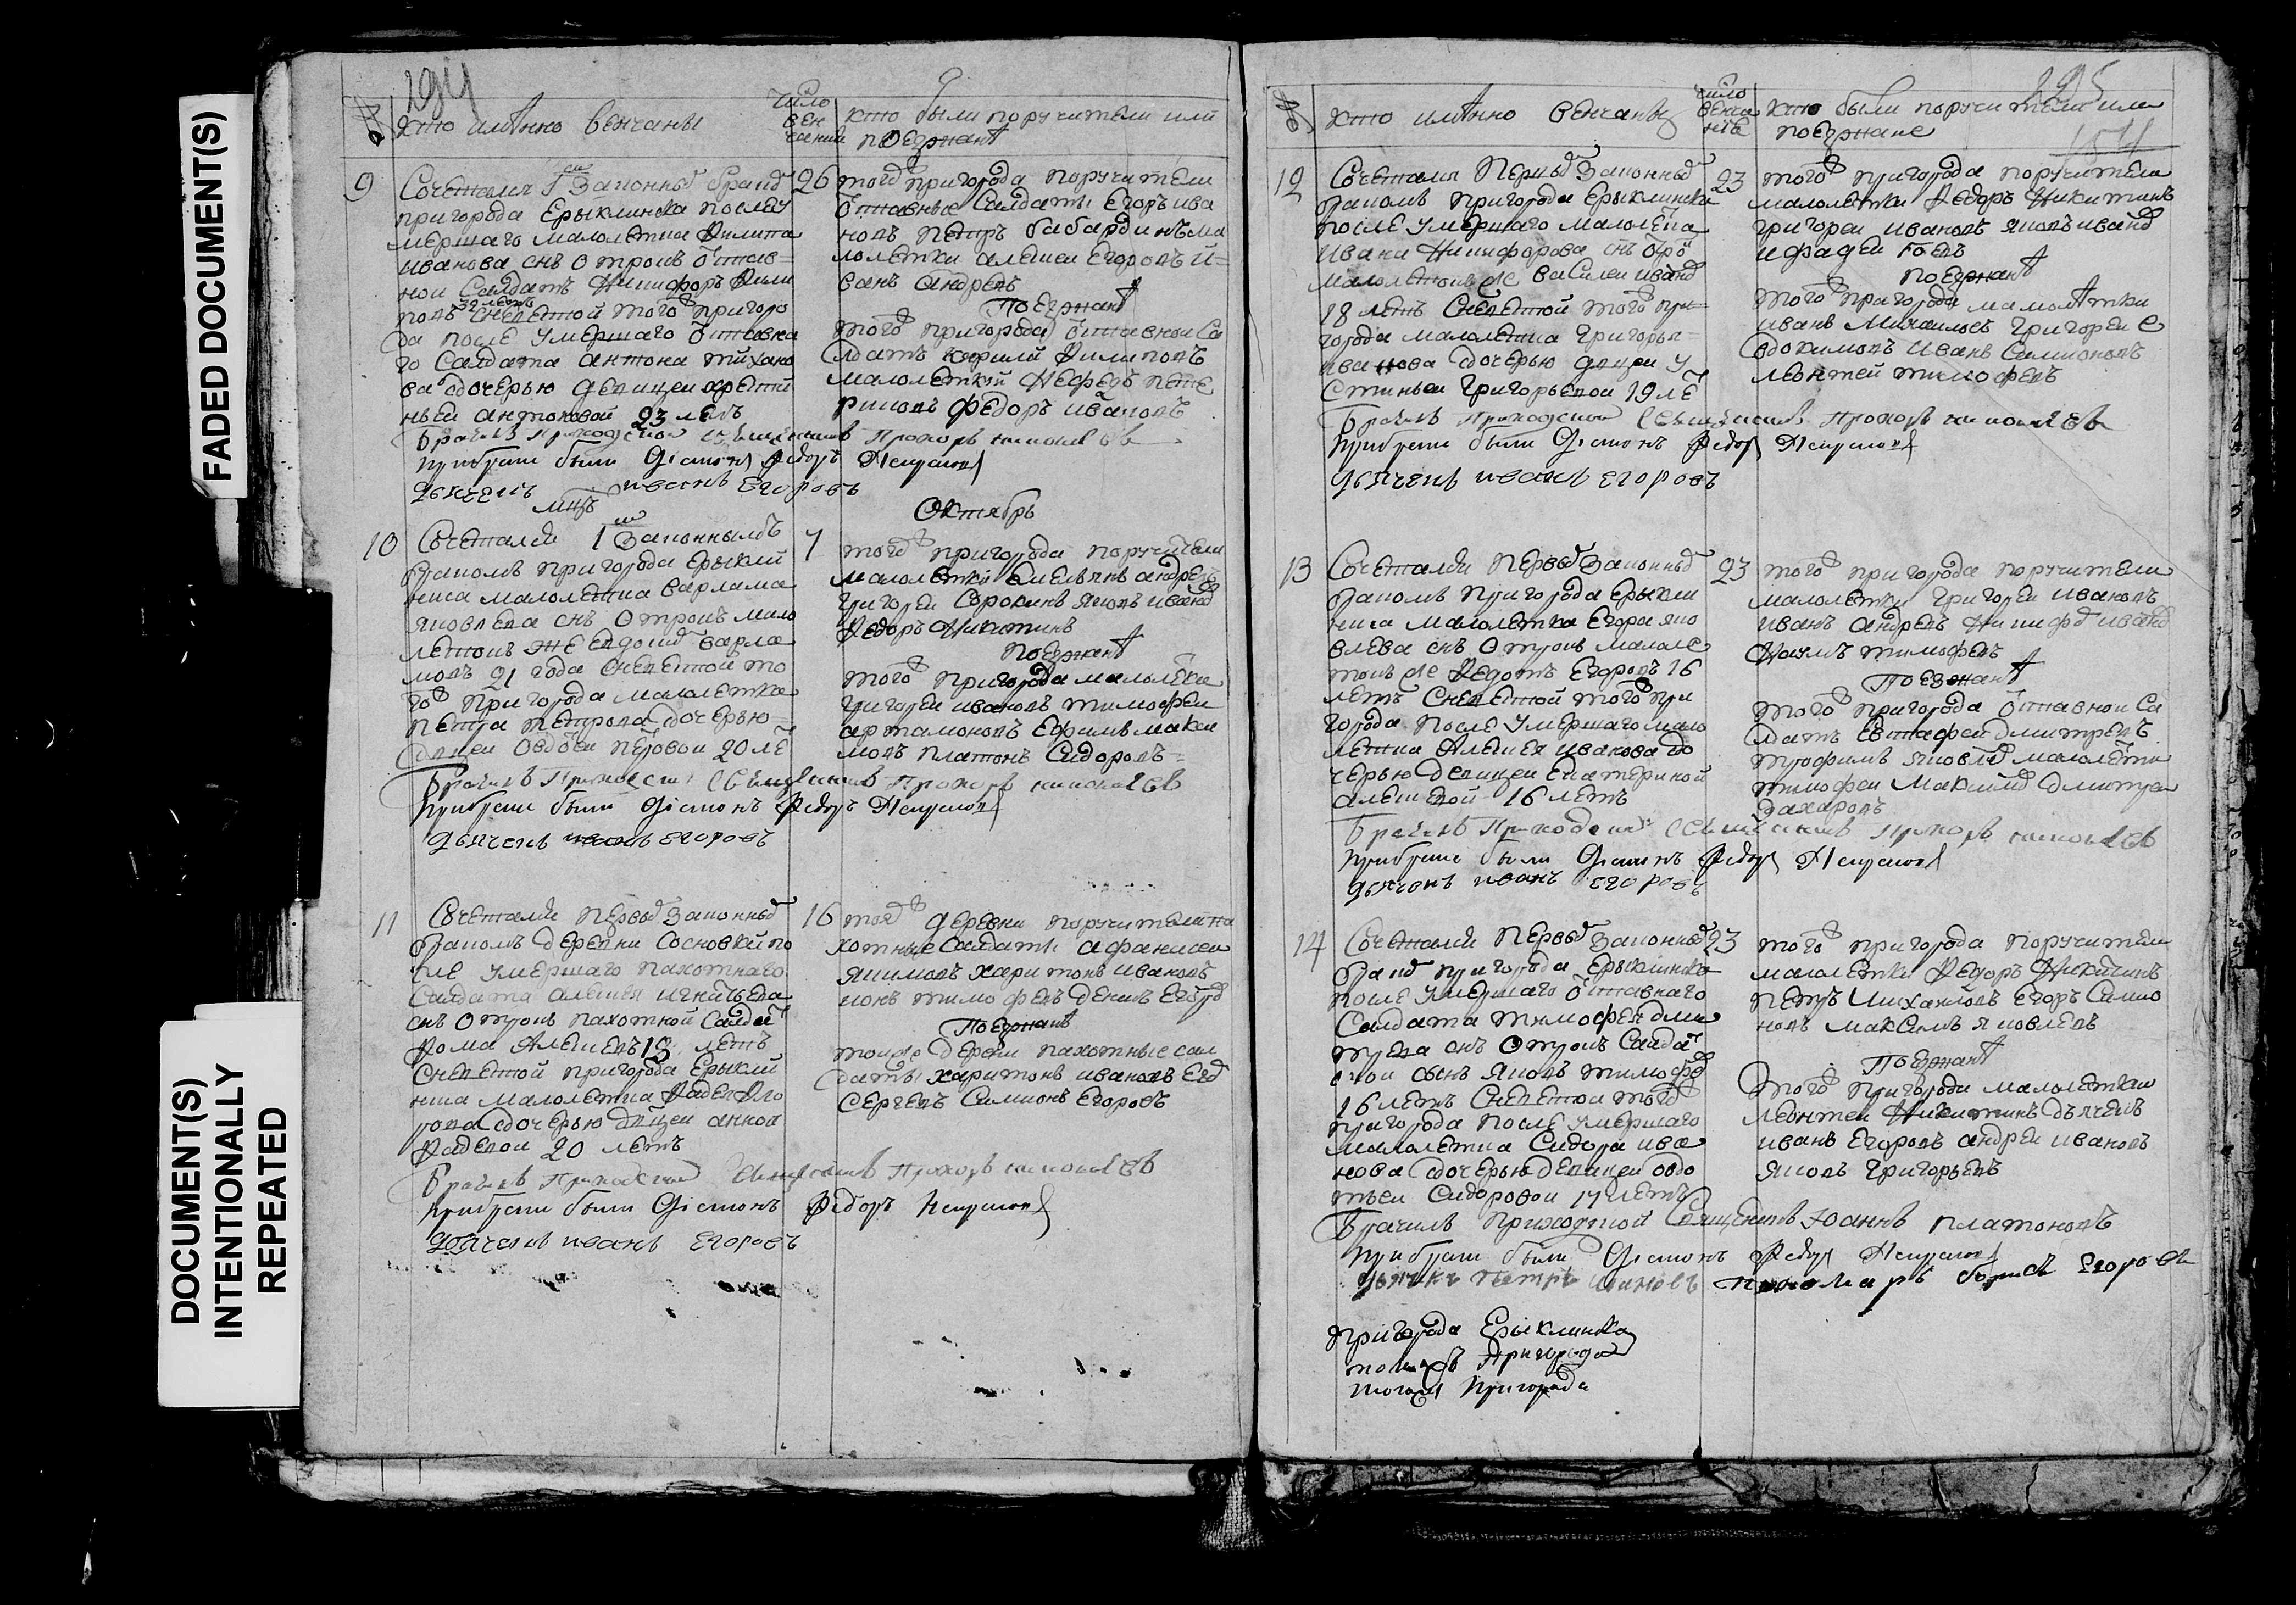 FADED DOCUMENT(S)
DOCUMENT(S)
INTENTIONALLY
REPEATED
294
№
кто имѣнно венчаны
число
вен
чания
кто были поручители или
поезжанѣ
9
Сочетался 1 м Законныѣ браком
пригорода Ерыклинска послѣ у
мершаго малолетка Филипа
иванова снъ отрокъ отстав=
ной Салдатъ Никифоръ Фили
повъ 32 летъ Сневестой того пригоро
да после умершаго отставна
го Салдата антона тихано
ва Здочерью девицеи христи
ньей антоновой 23 летъ
26
того пригорода поручители
отставные Салдаты Егоръ ива
новъ Петръ бабардинъ ма
лолетки алексеи Егоровъ и=
ванъ андреевъ
Поезжанѣ
того пригорода отставной Са
лдатъ кирила Филиповъ
малолетки Нефедъ пете
ринъ федоръ ивановъ
Бракъ Приходской Священникъ Прохоръ
при браке были Дiаконъ Федоръ
дьячекъ иванъ Егоровъ
мцъ Октябрь
10
Сочетался 1 м Законнымъ
бракомъ пригорода Ерыкли
нска малолетка варлама
яковлева снъ отрокъ мало
летокъ же Евдокимъ варла
мовъ 21 года Сневестой то
го пригорода малолетка
петра петрова дочерью
девицеи овдотьеи петровои 20 ле
7
того пригорода поручители
малолетки Емельянъ андреевъ
григореи Сорокинъ яковъ ивановъ
Федоръ Никитинъ
Поезжанѣ
того пригорода малолетки
григореи ивановъ тимофеи
артамоновъ Ефимъ макси
мовъ платонъ Сидоровъ
Бракъ Приходской Священникъ Прохоръ
при браке были Дiаконъ Федоръ
дьячекъ иванъ Егоровъ
11
Сочетался Первымъ Законнымъ
бракомъ деревни Сосновки по
сле умершаго пахотнаго
Салдата алексея игнатьева
снъ отрокъ пахотной Салдатъ
Фома Алексеевъ 18 летъ
Сневестой пригорода Ерыкли
нска малолетка Фадея Фло
рова Здочерью девицеи анной
Фадеевои 20 летъ
16
тояже деревни поручители па
хотные Салдаты афанасеи
якимовъ харитонъ ивановъ
ионъ тимофеевъ денисъ Егоровъ
Поезжанѣ
тоиже деревни пахотные сал
даты харитонъ ивановъ
Сергеевъ Симионъ Егоровъ
Бракъ Приходской Священникъ Прохоръ
при браке были Дiаконъ Федоръ
дьячекъ иванъ Егоровъ
295
№
кто имѣнно венчаны
число
венча
ния
кто были поручители или
поезжане
12
Сочетался Первымъ Законнымъ
бракомъ Пригорода Ерыклинска
после умершаго малолетка
ивана Никифорова снъ отрокъ
малолетокъ же василеи ивановъ
18 летъ Сневестой того при=
города малолетка григорья
иванова Здочерью девицеи у
стиньеи григорьевои 19 ле
23
того пригорода поручители
малолетки Федоръ Никитинъ
григореи ивановъ яковъ ивановъ
ифадеи
поезжанѣ
того пригорода малолѣтки
иванъ Михаиловъ григореи е
вдокимовъ иванъ Симионовъ
леонтеи тимофеевъ
Бракъ Приходской Священникъ Прохоръ
при браке были Дiаконъ Федоръ
дьячекъ иванъ Егоровъ
13
Сочетался Первымъ Законнымъ
бракомъ Пригорода Ерыкли
нска малолетка Егора яко
влева снъ отрокъ малоле
токъ же Федотъ Егоровъ 16
летъ Сневестой того при
города после умершаго мало
летка Алексея иванова до
черью девицеи Екатериной
алексевой 16 летъ
23
того пригорода поручители
малолетки Григореи ивановъ
иванъ андреевъ Никифоръ ивановъ
Наумъ тимофеевъ
Поезжанѣ
того пригорода отставнои Са
лдатъ Евстафеи дмитреевъ
трофимъ яковлевъ малолетки
тимофеи Максимовъ дмитреи
захаровъ
Бракъ Приходской Священникъ Прохоръ
при браке были Дiаконъ Федоръ
дьячекъ иванъ Егоровъ
14
Сочетался Первымъ Законнымъ
бракомъ пригорода Ерыклинска
после умершаго отставнаго
Салдата тимофея дми
треева снъ отрокъ Салдат
скои сынъ яковъ тимофеевъ
16 летъ Сневестои тогоже
пригорода после умершаго
малолетка Сидора ива
нова Здочерью девицеи овдо
тьеи Сидоровои 17 летъ
23
того пригорода поручители
малолетки Федоръ Никитинъ
петръ Михаиловъ Егоръ Симио
новъ максимъ яковлевъ
Поезжанѣ
того Пригорода малолетки
леонтеи Никитинъ дьячекъ
иванъ Егоровъ андреи ивановъ
яковъ григорьевъ
Врачилъ Приходской Священникъ Иоаннъ платоновъ
при браке были Дiаконъ Федоръ
дьячекъ Петръ пономарь борисъ Егоровъ
пригорода Ерыклинска
пригорода
тогожъ Пригорода